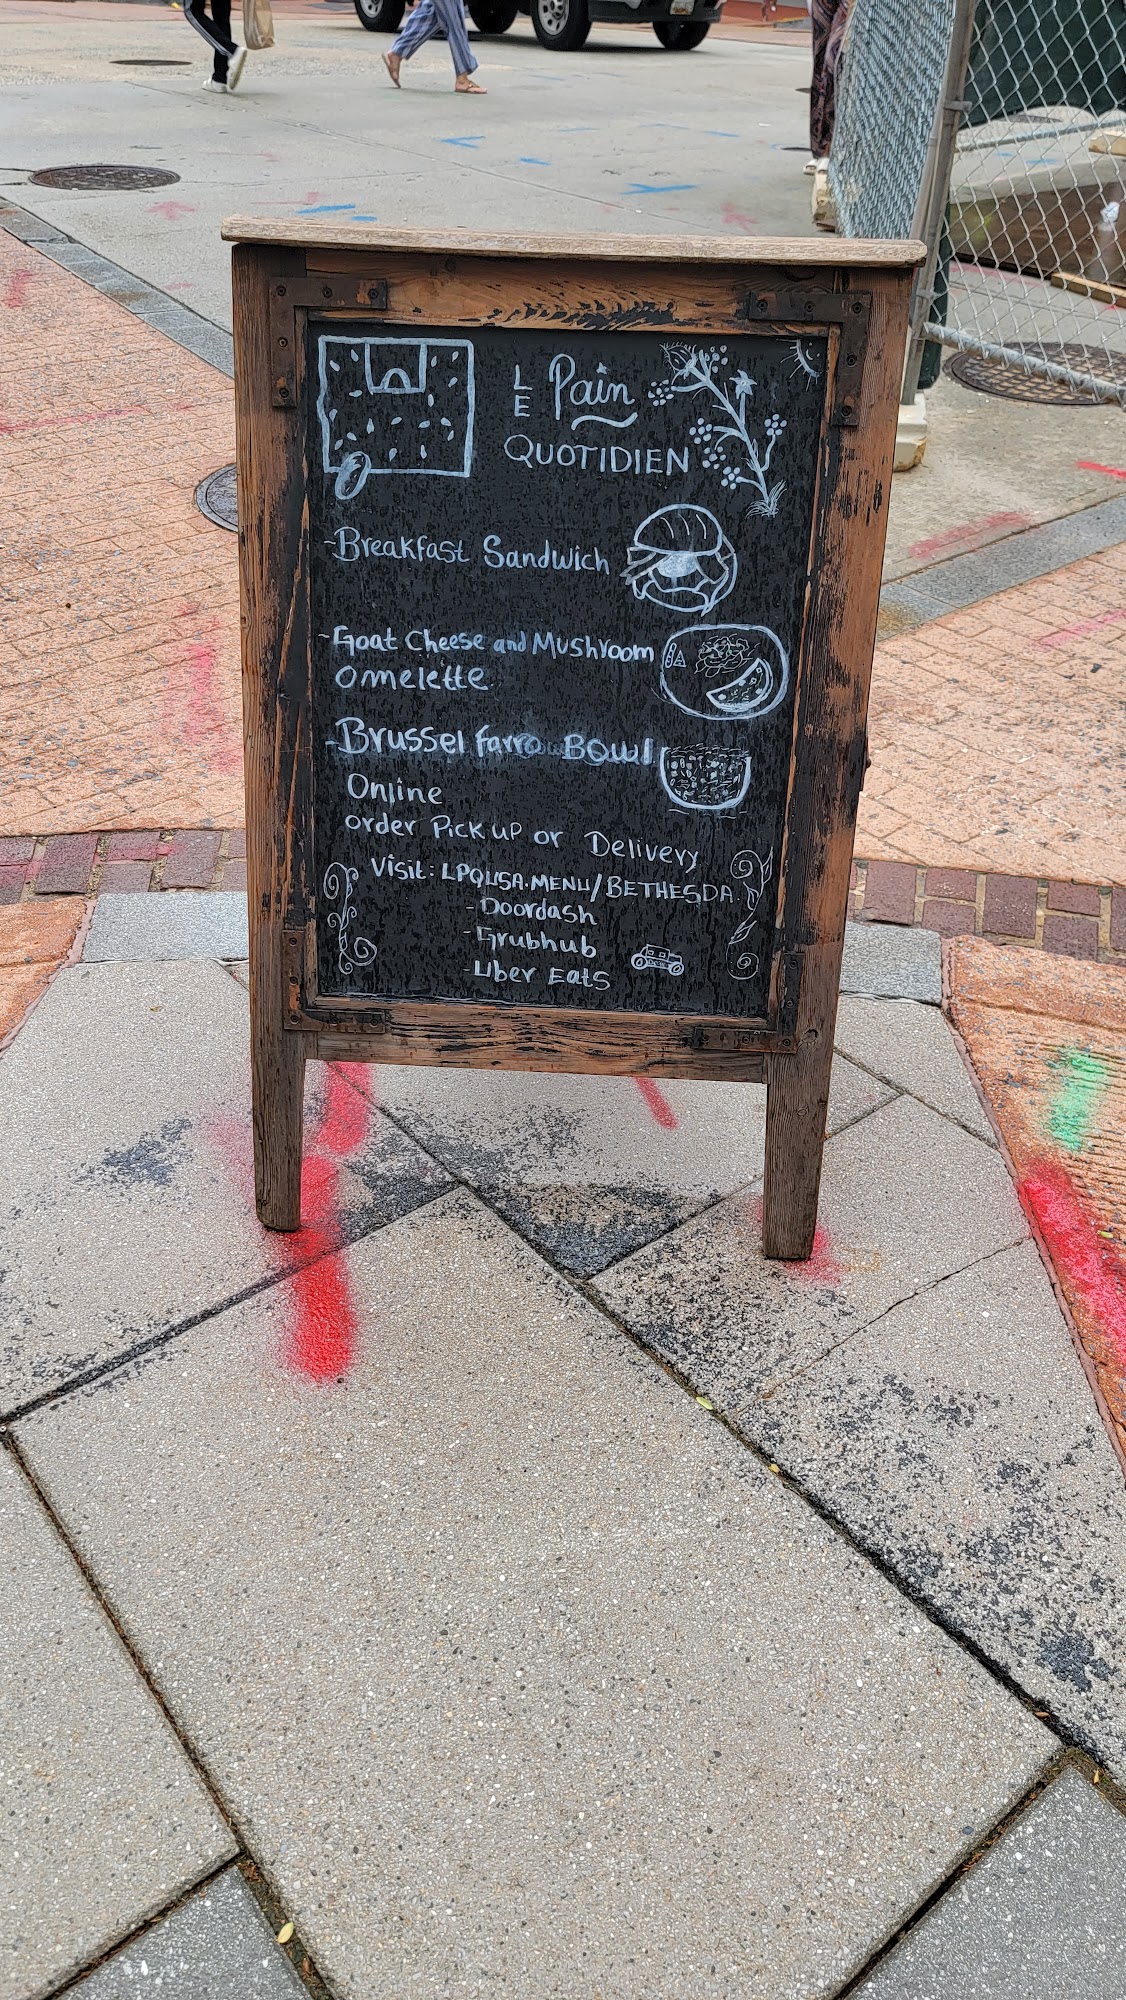 LE Pain
QUOTIDIEN
-Breakfast Sandwich
-Goat Cheese and Mushroom
omelette.
-Brussel farro Bowl
Online
order Pick up or Delivery
Visit: LPQUSA.MENU/BETHESDA.
-Doordash
-Grubhub
-Uber Eats